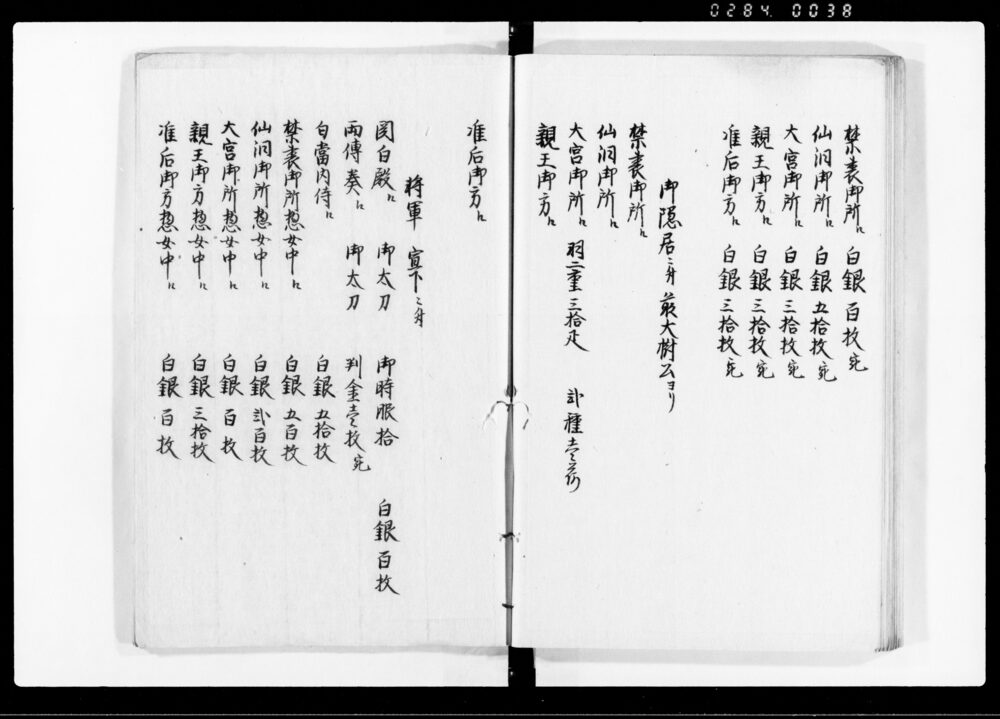 0284 0038
禁裏御所ニ 白銀百枚宛
仙洞御所ニ 白銀五拾枚宛
大宮御所ニ 白銀三拾枚宛
親王御方ニ 白銀三拾枚宛
准后御方ニ 白銀三拾枚宛
御隠居ニ付 前大樹公ヨリ
禁裏御所ニ
仙洞御所ニ
大宮御所ニ 羽二重三拾疋 弐種壱荷
親王御方ニ
准后御方ニ
将軍 宣下ニ付
関白殿ニ 御太刀 御時服拾 白銀百枚
両傳奏ニ 御太刀 判金壱枚宛
勾當内侍ニ 白銀五拾枚
禁裏御所惣女中ニ 白銀五百枚
仙洞御所惣女中ニ 白銀弐百枚
大宮御所惣女中ニ 白銀百枚
親王御方惣女中ニ 白銀三拾枚
准后御方惣女中ニ 白銀百枚